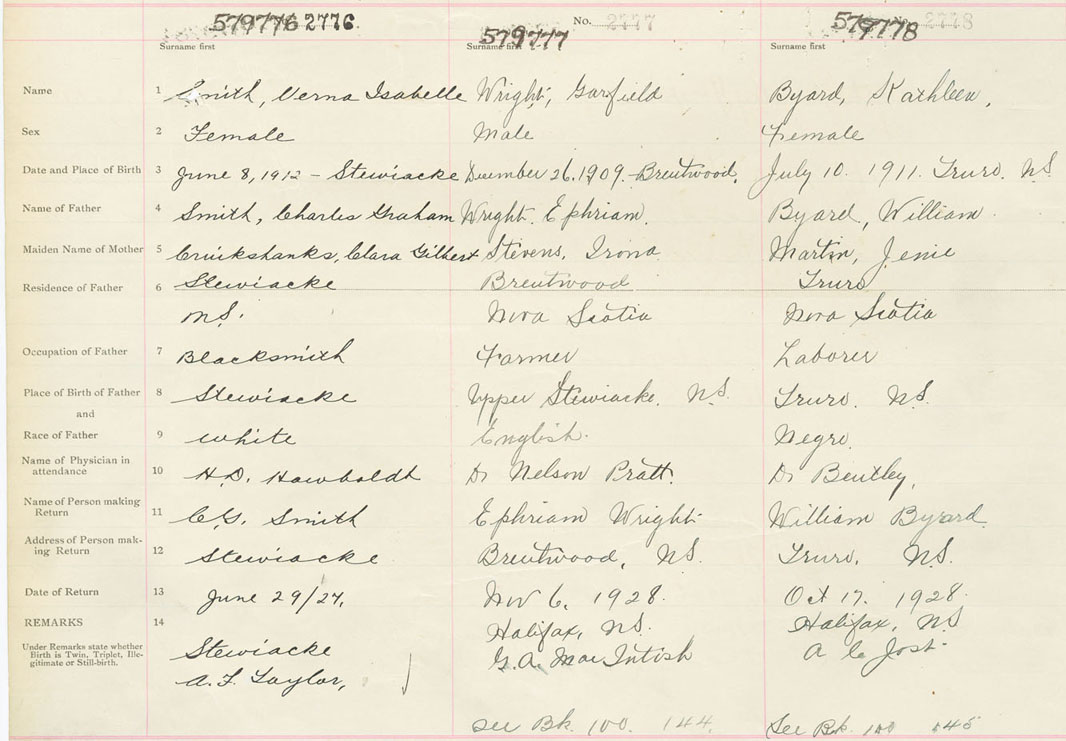 579776 2776 No. 2777 579777 No. 2778 579778
Surname first Surname first Surname first
Name 1 Smith, Verna Isabelle Wright, Garfield Byard, Kathleen,
Sex 2 Female Male Female
Date and Place of Birth 3 June 8, 1912 - Stewiacke December 26. 1909 - Brentwood. July 10. 1911. Truro. N.S.
Name of Father 4 Smith, Charles Graham Wright Ephriam. Byard, William
Maiden Name of Mother 5 Cruikshanks, Clara Gilbert Stevens, Irona Martin, Jenie
Residence of Father 6 Stewiacke Brentwood Truro
N.S. Nova Scotia Nova Scotia
Occupation of Father 7 Blacksmith Farmer Laborer
Place of Birth of Father 8 Stewiacke Upper Stewiacke. N.S. Truro. N.S.
and
Race of Father 9 White English. Negro.
Name of Physician in
attendance 10 H.D. Hawboldt Dr Nelson Pratt. Dr Bentley,
Name of Person making
Return 11 C.G. Smith Ephriam Wright William Byard.
Address of Person mak-
ing Return 12 Stewiacke Brentwood, N.S. Truro. N.S.
Date of Return 13 June 29/27, Nov 6. 1928. Oct 17. 1928.
REMARKS 14 Halifax, N.S. Halifax, N.S
Under Remarks state whether
Birth is Twin, Triplet, Ille-
gitimate or Still-birth.
Stewiacke G.A. MacIntish A C Jost.
A.F. Taylor,
See Bk. 100 144 See Bk. 100 145